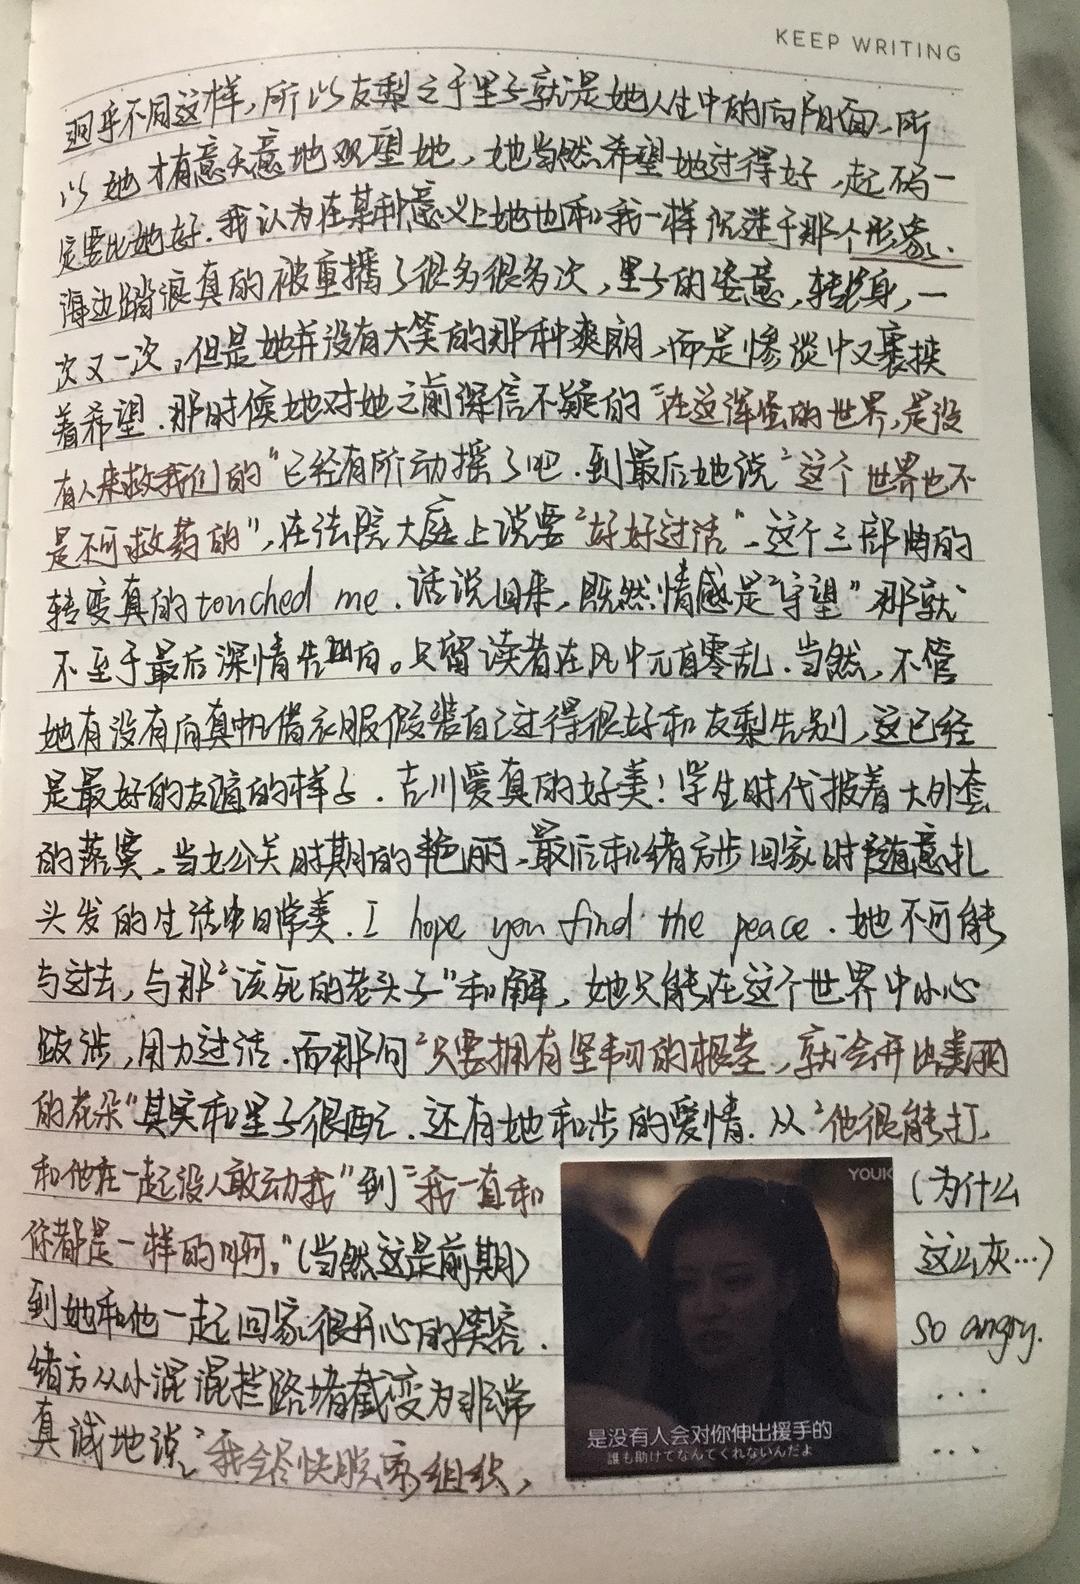 KEEP WRITING
迥乎不同这样,所以友梨之于里子就是她人生中的向阳面、所
以她才有意无意地观望她,她当然希望她过得好,起码一
定要比她好.我认为在某种意义上她也和我一样沉迷于那个形象.
海边踏浪真的被重播了很多很多次,里子的姿意,转身,一
次又一次,但是她并没有大笑的那种爽朗,而是惨淡中又裹挟
着希望.那时候她对她之前深信不疑的"在这浑蛋的世界,是没
有人来救我们的"已经有所动摇了吧.到最后她说"这个世界也不
是不可救药的",在法院大庭上说要"好好过活"、这个三部曲的
转变真的touched me.话说回来,既然情感是"守望"那就
不至于最后深情告白。只留读者在风中兀自零乱.当然,不管
她有没有向真帆借衣服假装自己过得很好和友梨告别,这已经
是最好的友谊的样子.吉川爱真的好美!学生时代披着大外套
的落寞、当女公关时期的艳丽、最后和绪方步回家时随意扎
头发的生活中日常美.I hope you find the peace.她不可能
与过去,与那"该死的老头子"和解,她只能在这个世界中小心
跋涉,用力过活.而那句"只要拥有坚韧的根茎,就会开出美丽
的花朵"其实和里子很配.还有她和步的爱情.从"他很能打,
和他在一起没人敢动我"到"我一直和
你都是一样的啊。"(当然这是前期)
到她和他一起回家很开心的笑容.
绪方从小混混拦路堵截变为非常
真诚地说"我会尽快脱离组织,
YOUK
是没有人会对你伸出援手的
誰も助けてなんてくれないんだよ
(为什么
这么灰…)
so angry.
...
...